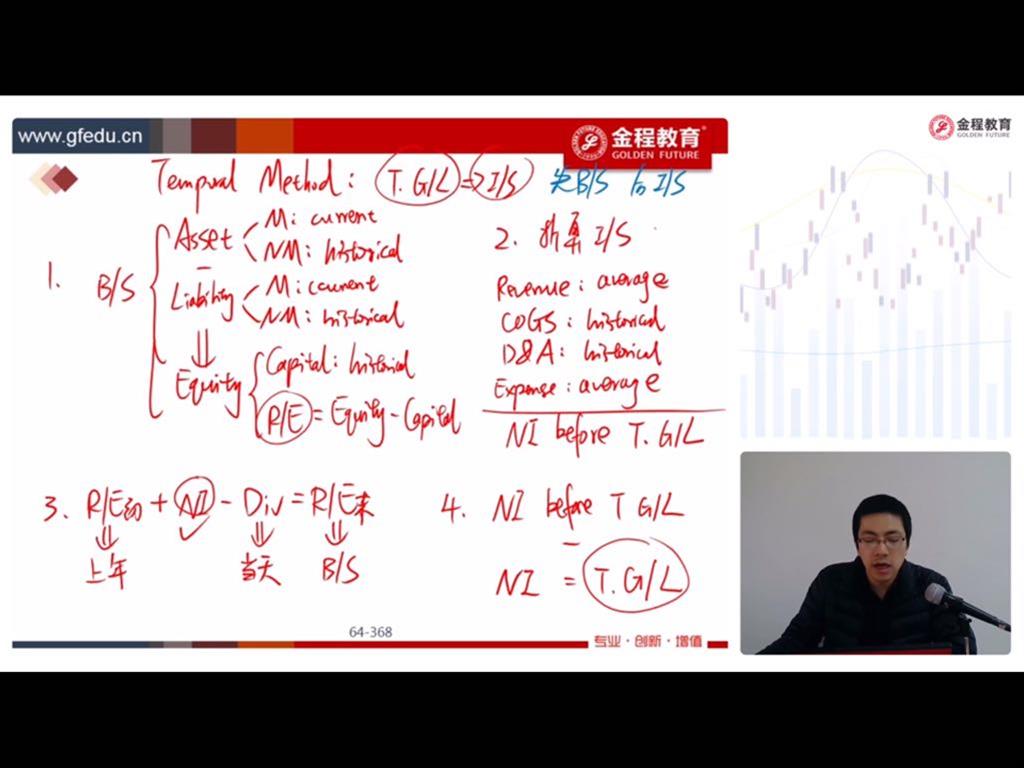 www.gfedu.cn
金程教育
GOLDEN FUTURE
金程教育
GOLDEN FUTURE
Temporal Method: T. G/L => I/S 先B/S 后I/S
1. B/S
Asset
M: current
NM: historical
Liability
M: current
NM: historical
Equity
Capital: historical
R/E = Equity - Capital
2. 折算 I/S
Revenue: average
COGS: historical
D&A: historical
Expense: average
NI before T. G/L
3. R/E初 + NI - Div = R/E末
上年 当天 B/S
4. NI before T G/L
- NI = T. G/L
64-368
专业·创新·增值